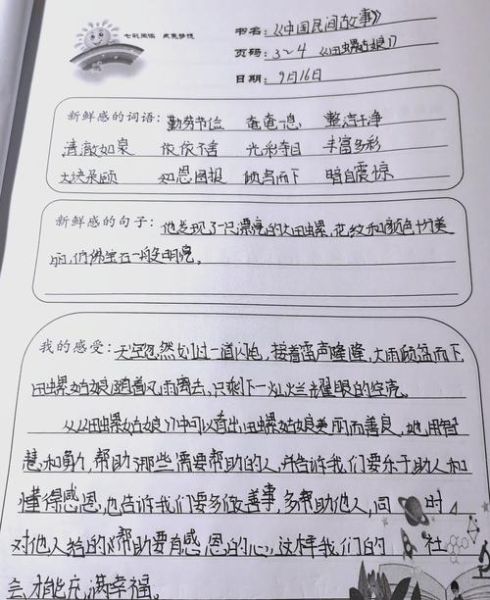 七彩阅读 点亮梦想
书名:《中国民间故事》
页码:3~4 《田螺姑娘》
日期:9月16日
新鲜感的词语:勤劳节俭 奄奄一息 整洁干净
清澈如泉 依依不舍 光彩夺目 丰富多彩
大快朵颐 知恩图报 倾盆而下 暗自震惊
新鲜感的句子:他发现了一只漂亮的大田螺,花纹和颜色十分美
丽,仿佛宝石一般明亮。
我的感受:天空忽然划过一道闪电,接着雷声隆隆,大雨倾盆而下,
田螺姑娘随着风雨离去,只剩下一灿烂耀眼的空壳。
从《田螺姑娘》中可以看出田螺姑娘美丽而善良,她用智
慧和勤,帮助那些需要帮助的人,并告诉我们要乐于助人和
懂得感恩,也告诉我们要多做善事,多帮助他人,同时
对他人给的帮助要有感恩的心,这样我们的社
会才能充满幸福。